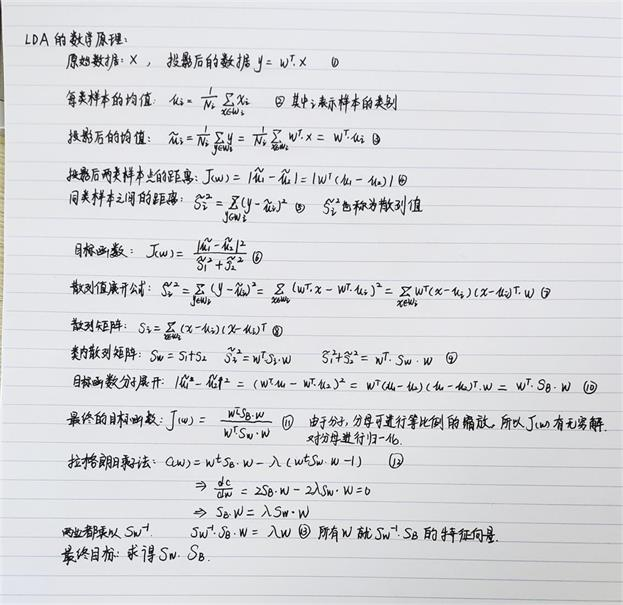 LDA 的数学原理:
原始数据: X , 投影后的数据 y = wᵀ.x ①
每类样本的均值: uᵢ = 1/Nᵢ Σ_{x∈wᵢ} xᵢ ② 其中i表示样本的类别
投影后的均值: ũᵢ = 1/Nᵢ Σ_{y∈wᵢ} y = 1/Nᵢ Σ_{x∈wᵢ} wᵀ.x = wᵀ.uᵢ ③
投影后两类样本点的距离: J(w) = |ũ₁ - ũ₂| = |wᵀ(u₁ - u₂)| ④
同类样本之间的距离: S̃ᵢ² = Σ_{y∈wᵢ} (y - ũᵢ)² ⑤ S̃ᵢ²也称为散列值
目标函数: J(w) = |ũ₁ - ũ₂|² / (S̃₁² + S̃₂²) ⑥
散列值展开公式: S̃ᵢ² = Σ_{y∈wᵢ} (y - ũᵢ)² = Σ_{x∈wᵢ} (wᵀ.x - wᵀ.uᵢ)² = Σ_{x∈wᵢ} wᵀ(x - uᵢ)(x - uᵢ)ᵀ.w ⑦
散列矩阵: Sᵢ = Σ_{x∈wᵢ} (x - uᵢ)(x - uᵢ)ᵀ ⑧
类内散列矩阵: Sw = S₁+S₂ S̃ᵢ² = wᵀSᵢ.w S̃₁²+S̃₂² = wᵀ.Sw.w ⑨
目标函数分子展开: |ũ₁ - ũ₂|² = (wᵀu₁ - wᵀ.u₂)² = wᵀ(u₁ - u₂)(u₁ - u₂)ᵀ.w = wᵀ.S_B.w ⑩
最终的目标函数: J(w) = wᵀS_B.w / wᵀSw.w ⑪ 由于分子,分母可进行等比例的缩放。所以J(w)有无穷解.
对分母进行归一化.
拉格朗日乘子法: C(w) = wᵗS_B.w - λ(wᵗSw.w - 1) ⑫
⇒ dc/dw = 2S_B.w - 2λSw.w = 0
⇒ S_B.w = λSw.w
两边都乘以 Sw⁻¹. Sw⁻¹.S_B.w = λw ⑬ 所有w就Sw⁻¹.S_B的特征向量.
最终目标: 求得Sw. S_B.